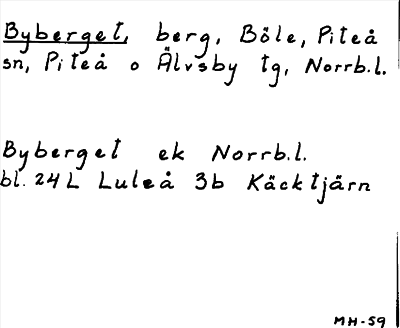 Byberget, berg, Böle, Piteå
sn, Piteå o Älvsby tg, Norrb.l.
Byberget ek Norrb.l.
bl. 24L Luleå 3b Käcktjärn
MH-59